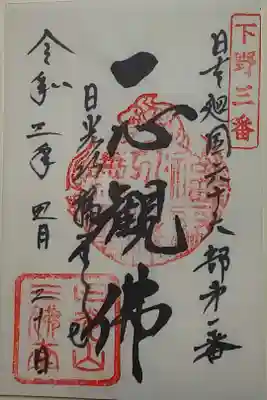 下野三番
日本廻国六十六部第一番
一心観佛
日光山
令和二年四月
二十日
日光山
三佛堂